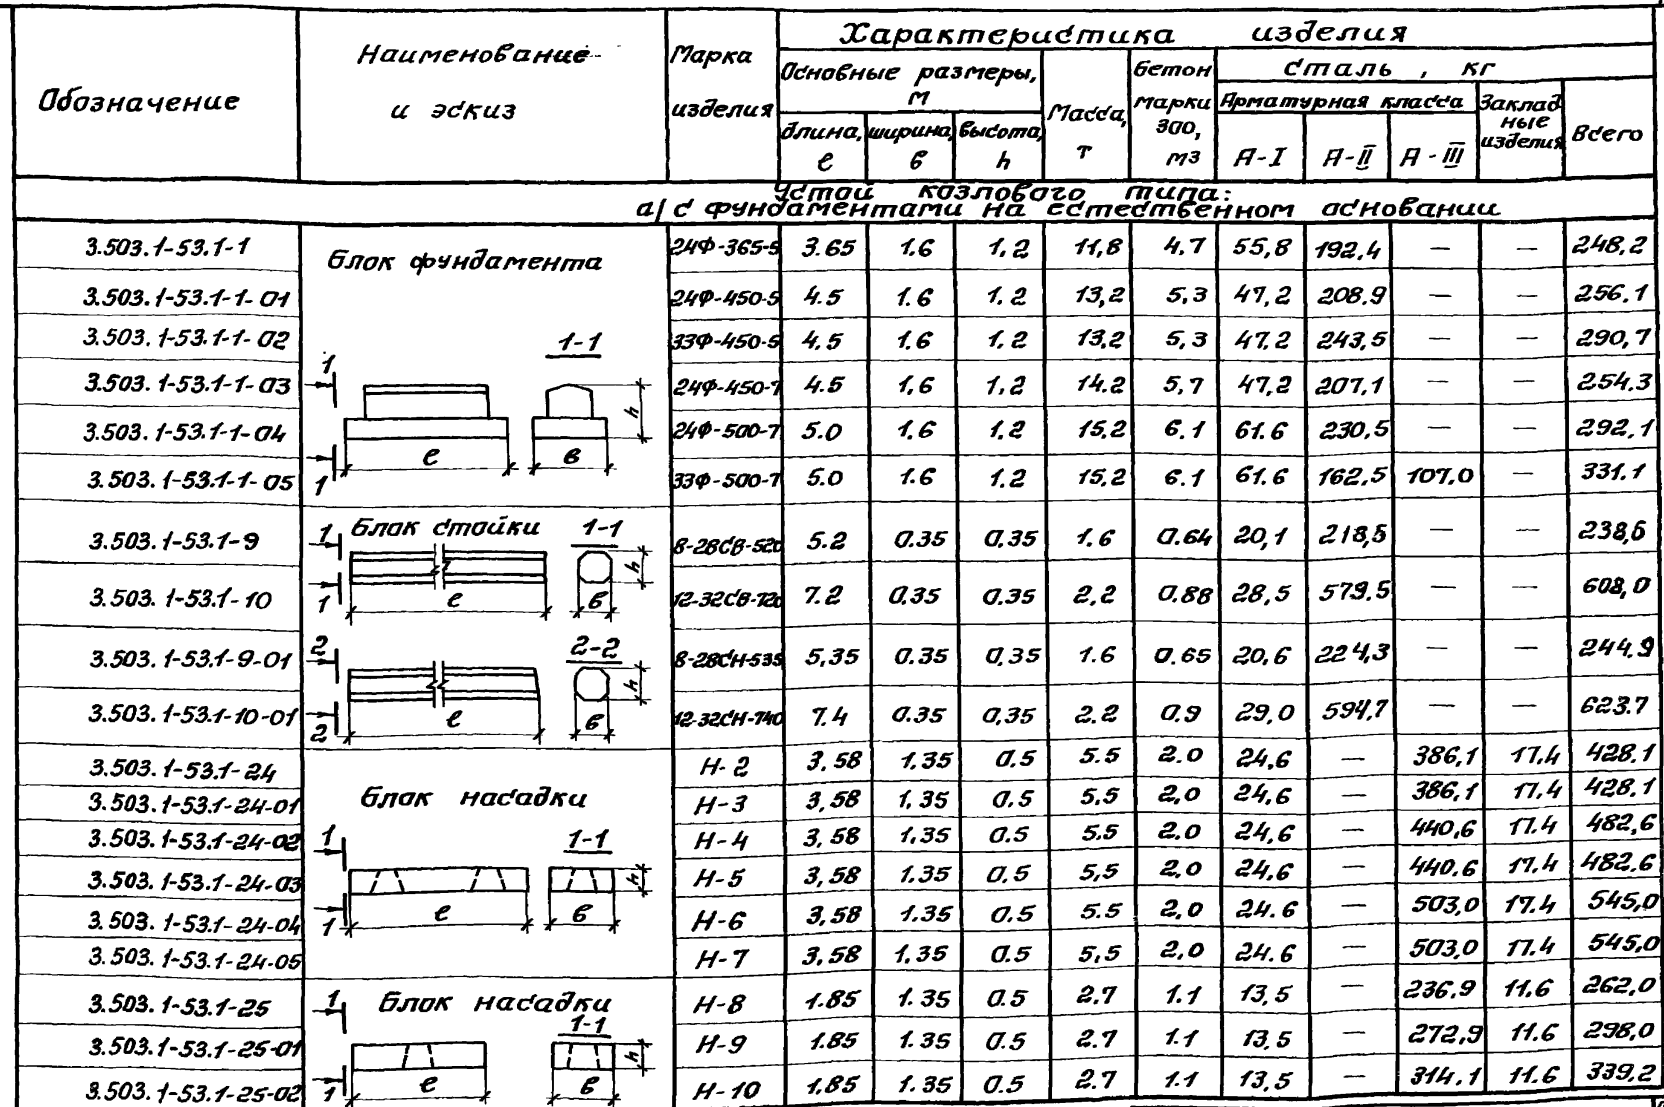 Обозначение
Наименование и эскиз
Марка изделия
Характеристика изделия
Основные размеры, м
длина, ℓ
ширина, в
высота, h
Масса, т
бетон марки 300, м3
сталь, кг
Арматурная класса
А-I
А-II
А-III
Заклад ные изделия
Всего
Устои козлового типа:
а/ с фундаментами на естественном основании
3.503.1-53.1-1 24Ф-365-5 3.65 1.6 1,2 11,8 4.7 55,8 192,4 — — 248,2
Блок фундамента
3.503.1-53.1-1-01 24Ф-450-5 4.5 1.6 1.2 13,2 5.3 47,2 208.9 — — 256.1
3.503.1-53.1-1-02 33Ф-450-5 4,5 1.6 1.2 13,2 5,3 47.2 243,5 — — 290,7
1-1
3.503.1-53.1-1-03 24Ф-450-7 4.5 1,6 1,2 14.2 5,7 47,2 207,1 — — 254,3
1
h
3.503.1-53.1-1-04 24Ф-500-7 5.0 1.6 1.2 15,2 6.1 61.6 230,5 — — 292,1
ℓ в
3.503.1-53.1-1-05 33Ф-500-7 5.0 1.6 1.2 15,2 6.1 61.6 162,5 107,0 — 331.1
1
Блок стойки 1-1
3.503.1-53.1-9 8-28СВ-520 5.2 0.35 0.35 1.6 0.64 20,1 218,5 — — 238,6
1
h
3.503.1-53.1-10 12-32СВ-720 7.2 0.35 0.35 2,2 0.88 28,5 579.5 — — 608,0
1 ℓ в
2 2-2
3.503.1-53.1-9-01 8-28СН-535 5,35 0.35 0,35 1.6 0.65 20,6 224,3 — — 244.9
h
3.503.1-53.1-10-01 12-32СН-740 7.4 0.35 0,35 2.2 0.9 29,0 594,7 — — 623.7
2 ℓ в
3.503.1-53.1-24 Н-2 3,58 1,35 0.5 5.5 2.0 24,6 — 386,1 17.4 428.1
Блок насадки
3.503.1-53.1-24-01 Н-3 3,58 1,35 0.5 5,5 2,0 24,6 — 386,1 17.4 428.1
3.503.1-53.1-24-02 Н-4 3,58 1,35 0.5 5.5 2.0 24,6 — 440,6 17.4 482,6
1 1-1
3.503.1-53.1-24-03 Н-5 3,58 1.35 0.5 5,5 2,0 24,6 — 440.6 17.4 482.6
h
3.503.1-53.1-24-04 Н-6 3,58 1.35 0.5 5.5 2,0 24.6 — 503,0 17.4 545,0
1 ℓ в
3.503.1-53.1-24-05 Н-7 3,58 1,35 0.5 5,5 2,0 24.6 — 503,0 17.4 545,0
3.503.1-53.1-25 Н-8 1.85 1.35 0.5 2.7 1.1 13,5 — 236.9 11.6 262,0
1 Блок насадки
1-1
3.503.1-53.1-25-01 Н-9 1.85 1.35 0.5 2.7 1.1 13,5 — 272,9 11.6 298,0
h
3.503.1-53.1-25-02 Н-10 1,85 1.35 0.5 2.7 1.1 13,5 — 314.1 11.6 339.2
1 ℓ в